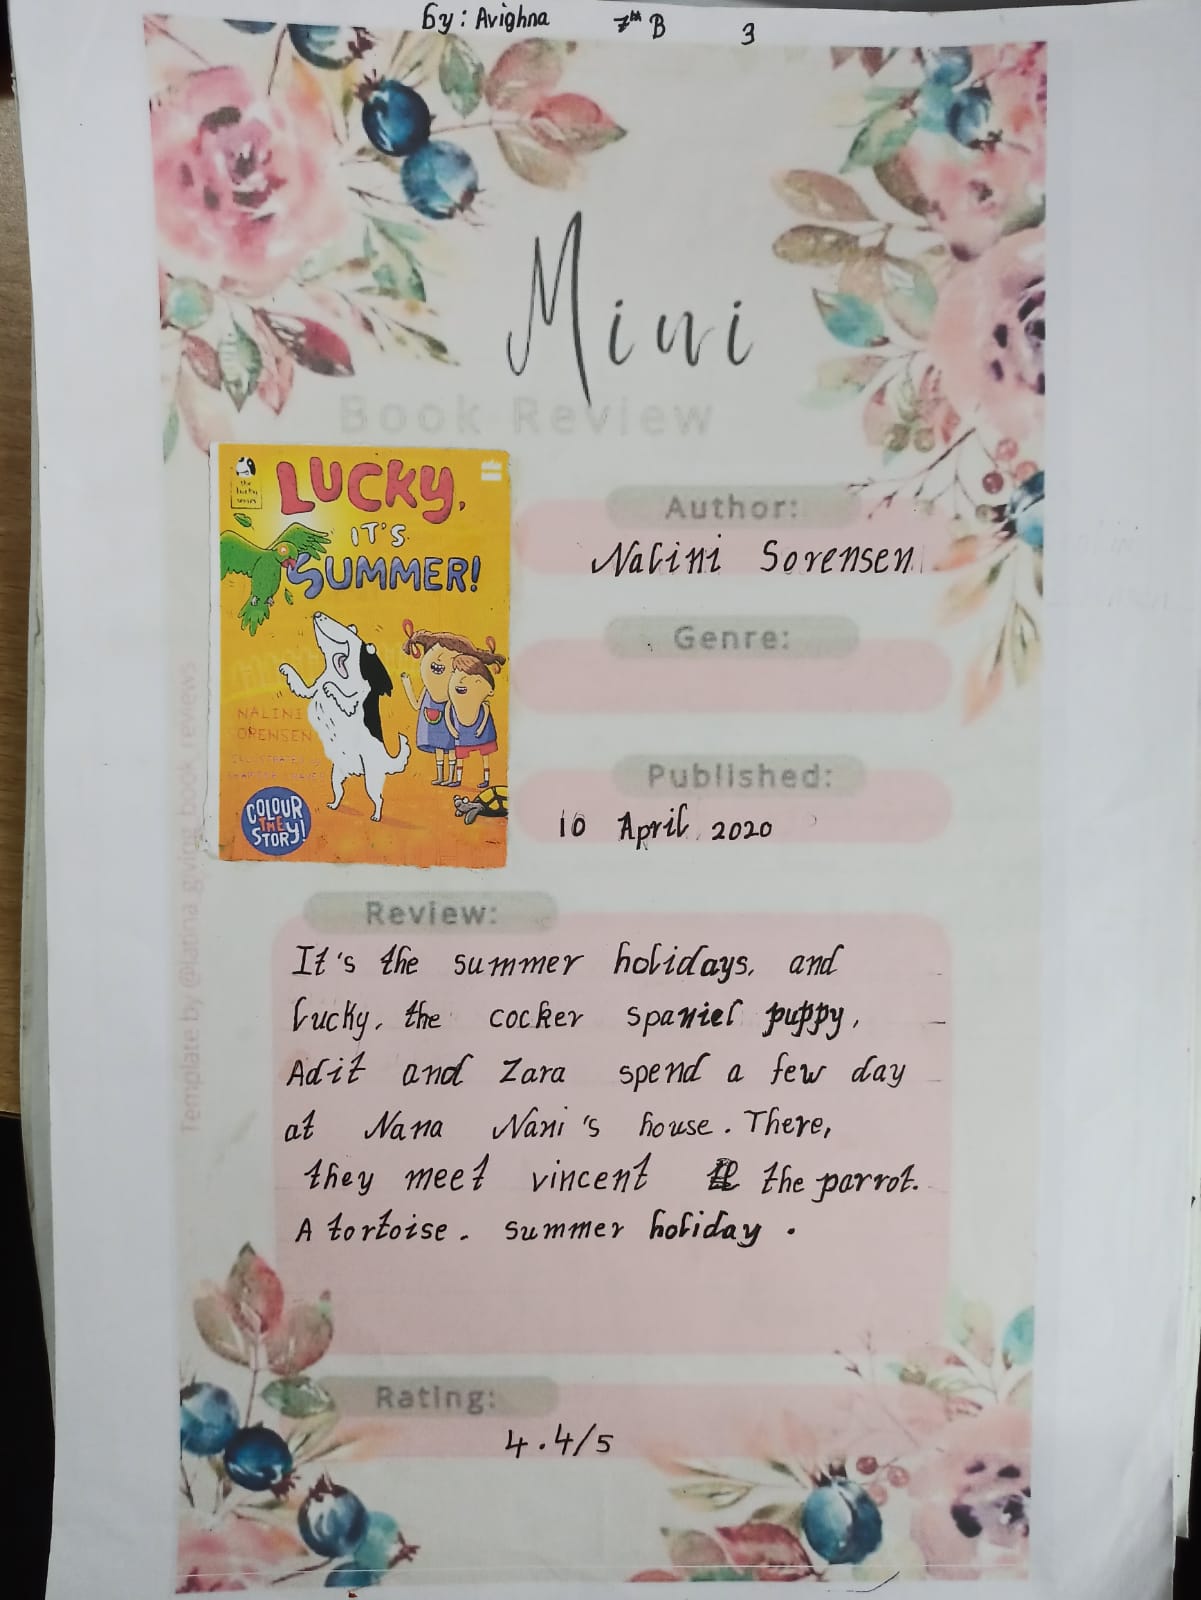 by: Avighna 7th B 3
Mini
Book Review
the lucky series
LUCKY,
IT'S
SUMMER!
NALINI
SORENSEN
ILLUSTRATED
COLOUR
THE
STORY!
Author:
Nalini Sorensen
Genre:
Published:
10 April 2020
Review:
It's the summer holidays, and
Lucky, the cocker spaniel puppy,
Adit and Zara spend a few day
at Nana Nani's house. There,
they meet vincent the parrot.
A tortoise. summer holiday.
Rating:
4.4/5
Template by @latina_giving_book_reviews